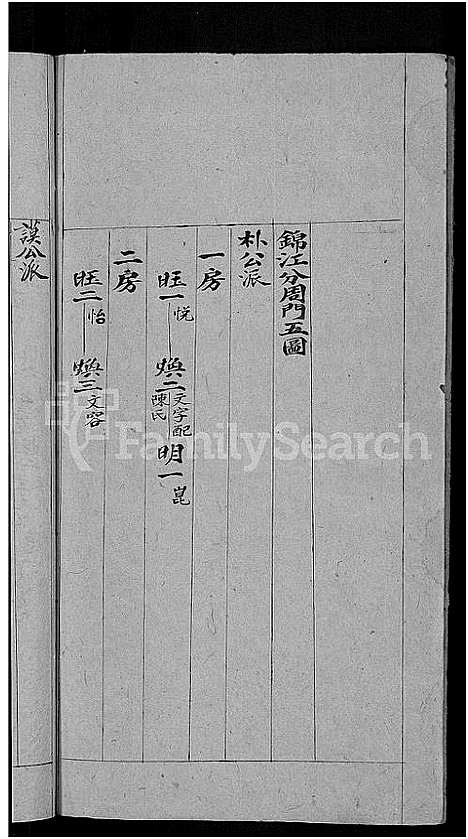 錦江分周門五圖
朴公派
一房
旺一悦 煥二文字配陳氏 明一崑
二房
旺二怡 煥三文容
謨公派
FamilySearch